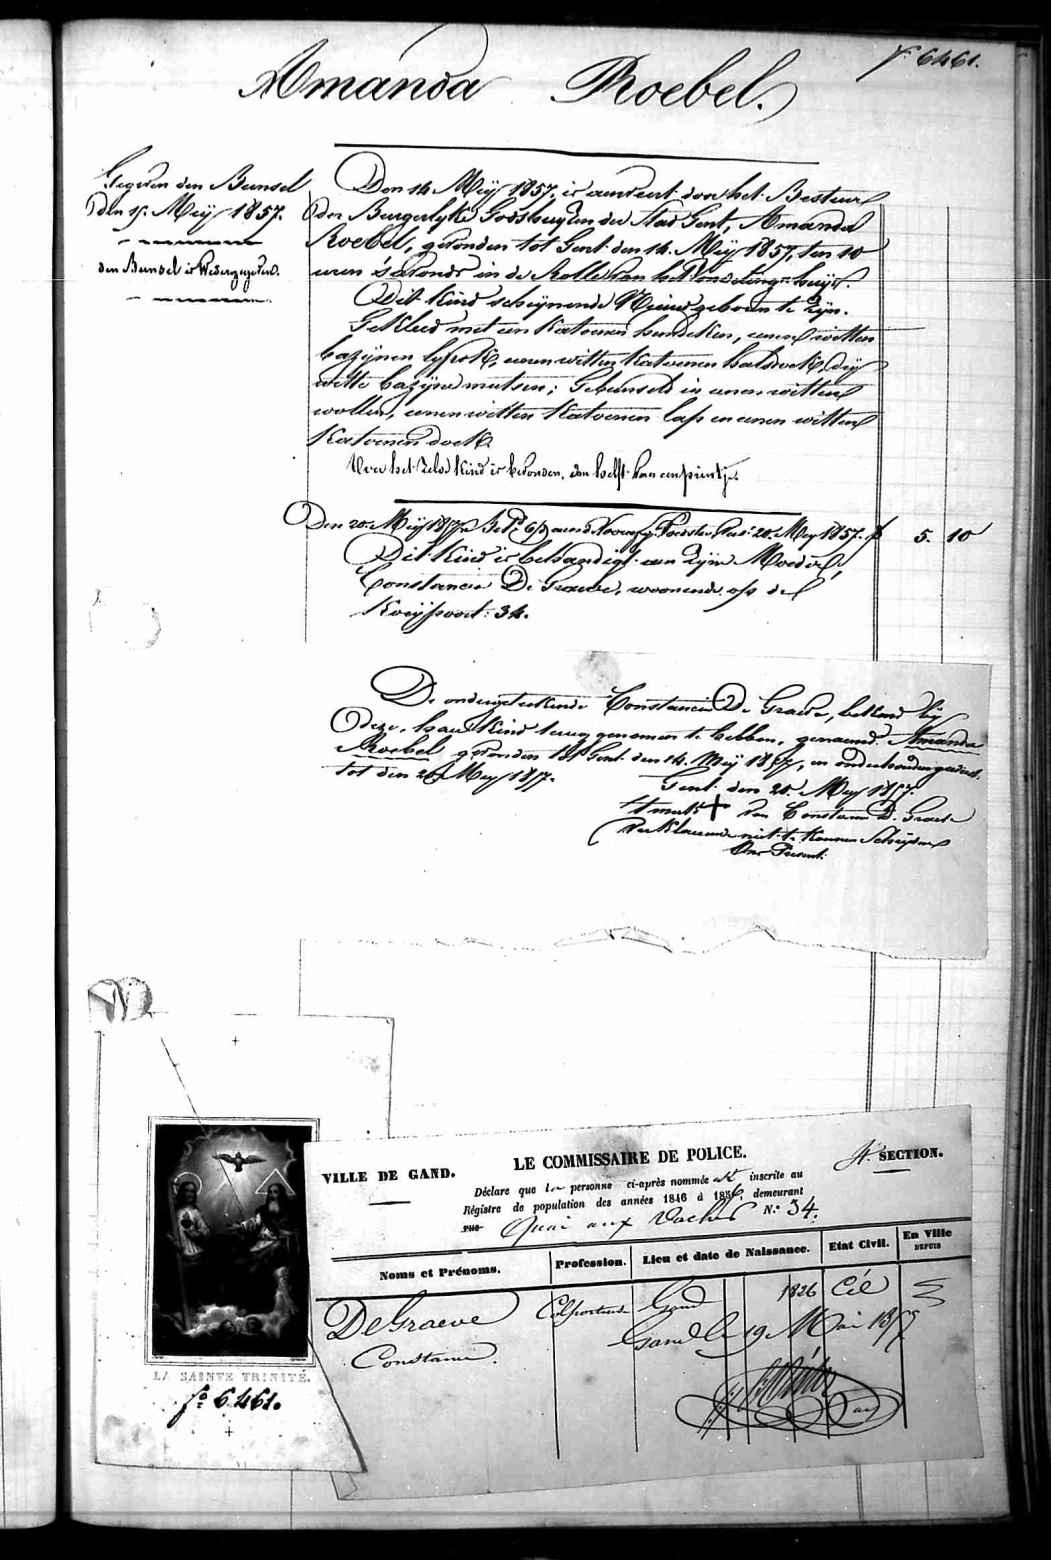 f° 6461.
Amanda Roebel.
Gegeven den Bunsel
den 15. Meÿ 1857.
den Bunsel is Wedergegeven.
Den 14. Meÿ 1857, is aanveert door het Bestuur
der Burgerlyke Godshuyzen der Stad Gent, Amanda
Roebel, gevonden tot Gent den 14. Meÿ 1857, ten 10
uren 's avonds in de Rolle van het Vondeling-huÿs.
Dit Kind scheÿnende Nieuwgeboren te zÿn.
Gekleed met een Katoenen hemdeken, eenen witten
bazÿnen lÿfrok, eenen witten Katoenen halsdoek, drÿ
witte bazÿne mutsen; Gebunseld in eenen witten
wollen, eenen witten Katoenen lap en eenen witten
Katoenen doek.
Over het Zelve Kind is bevonden, den helft van een printje.
Den 20. Meÿ 1857 20 Meÿ 1857. f 5. 10
Dit Kind is behandigt aan zÿne Moeder,
Constancia De Graeve, woonende op de
Koeÿpoort: 34.
De ondergeteekende Constancia De Graeve, bekend bÿ
deze, haer Kind terug genomen te hebben, genaemd Amanda
Roebel gevonden tot Gent den 14. Meÿ 1857, en onderhouden geweest
tot den 20 Meÿ 1857.
Gent den 20. Meÿ 1857.
't merk + van Constancia De Graeve
verklaerende niet te Konnen Schrÿven
Ons Present.
VILLE DE GAND.
LE COMMISSAIRE DE POLICE.
4e SECTION.
Déclare que la personne ci-après nommée est inscrite au
Régistre de population des années 1846 à 1856, demeurant
rue Quai aux Vaches N.° 34.
Noms et Prénoms. Profession. Lieu et date de Naissance. Etat Civil. En Ville DEPUIS
DeGraeve Colporteuse Gand 1826 Cél
Constance. Gand le 19 Mai 1857
LA SAINTE TRINITÉ.
f° 6461.